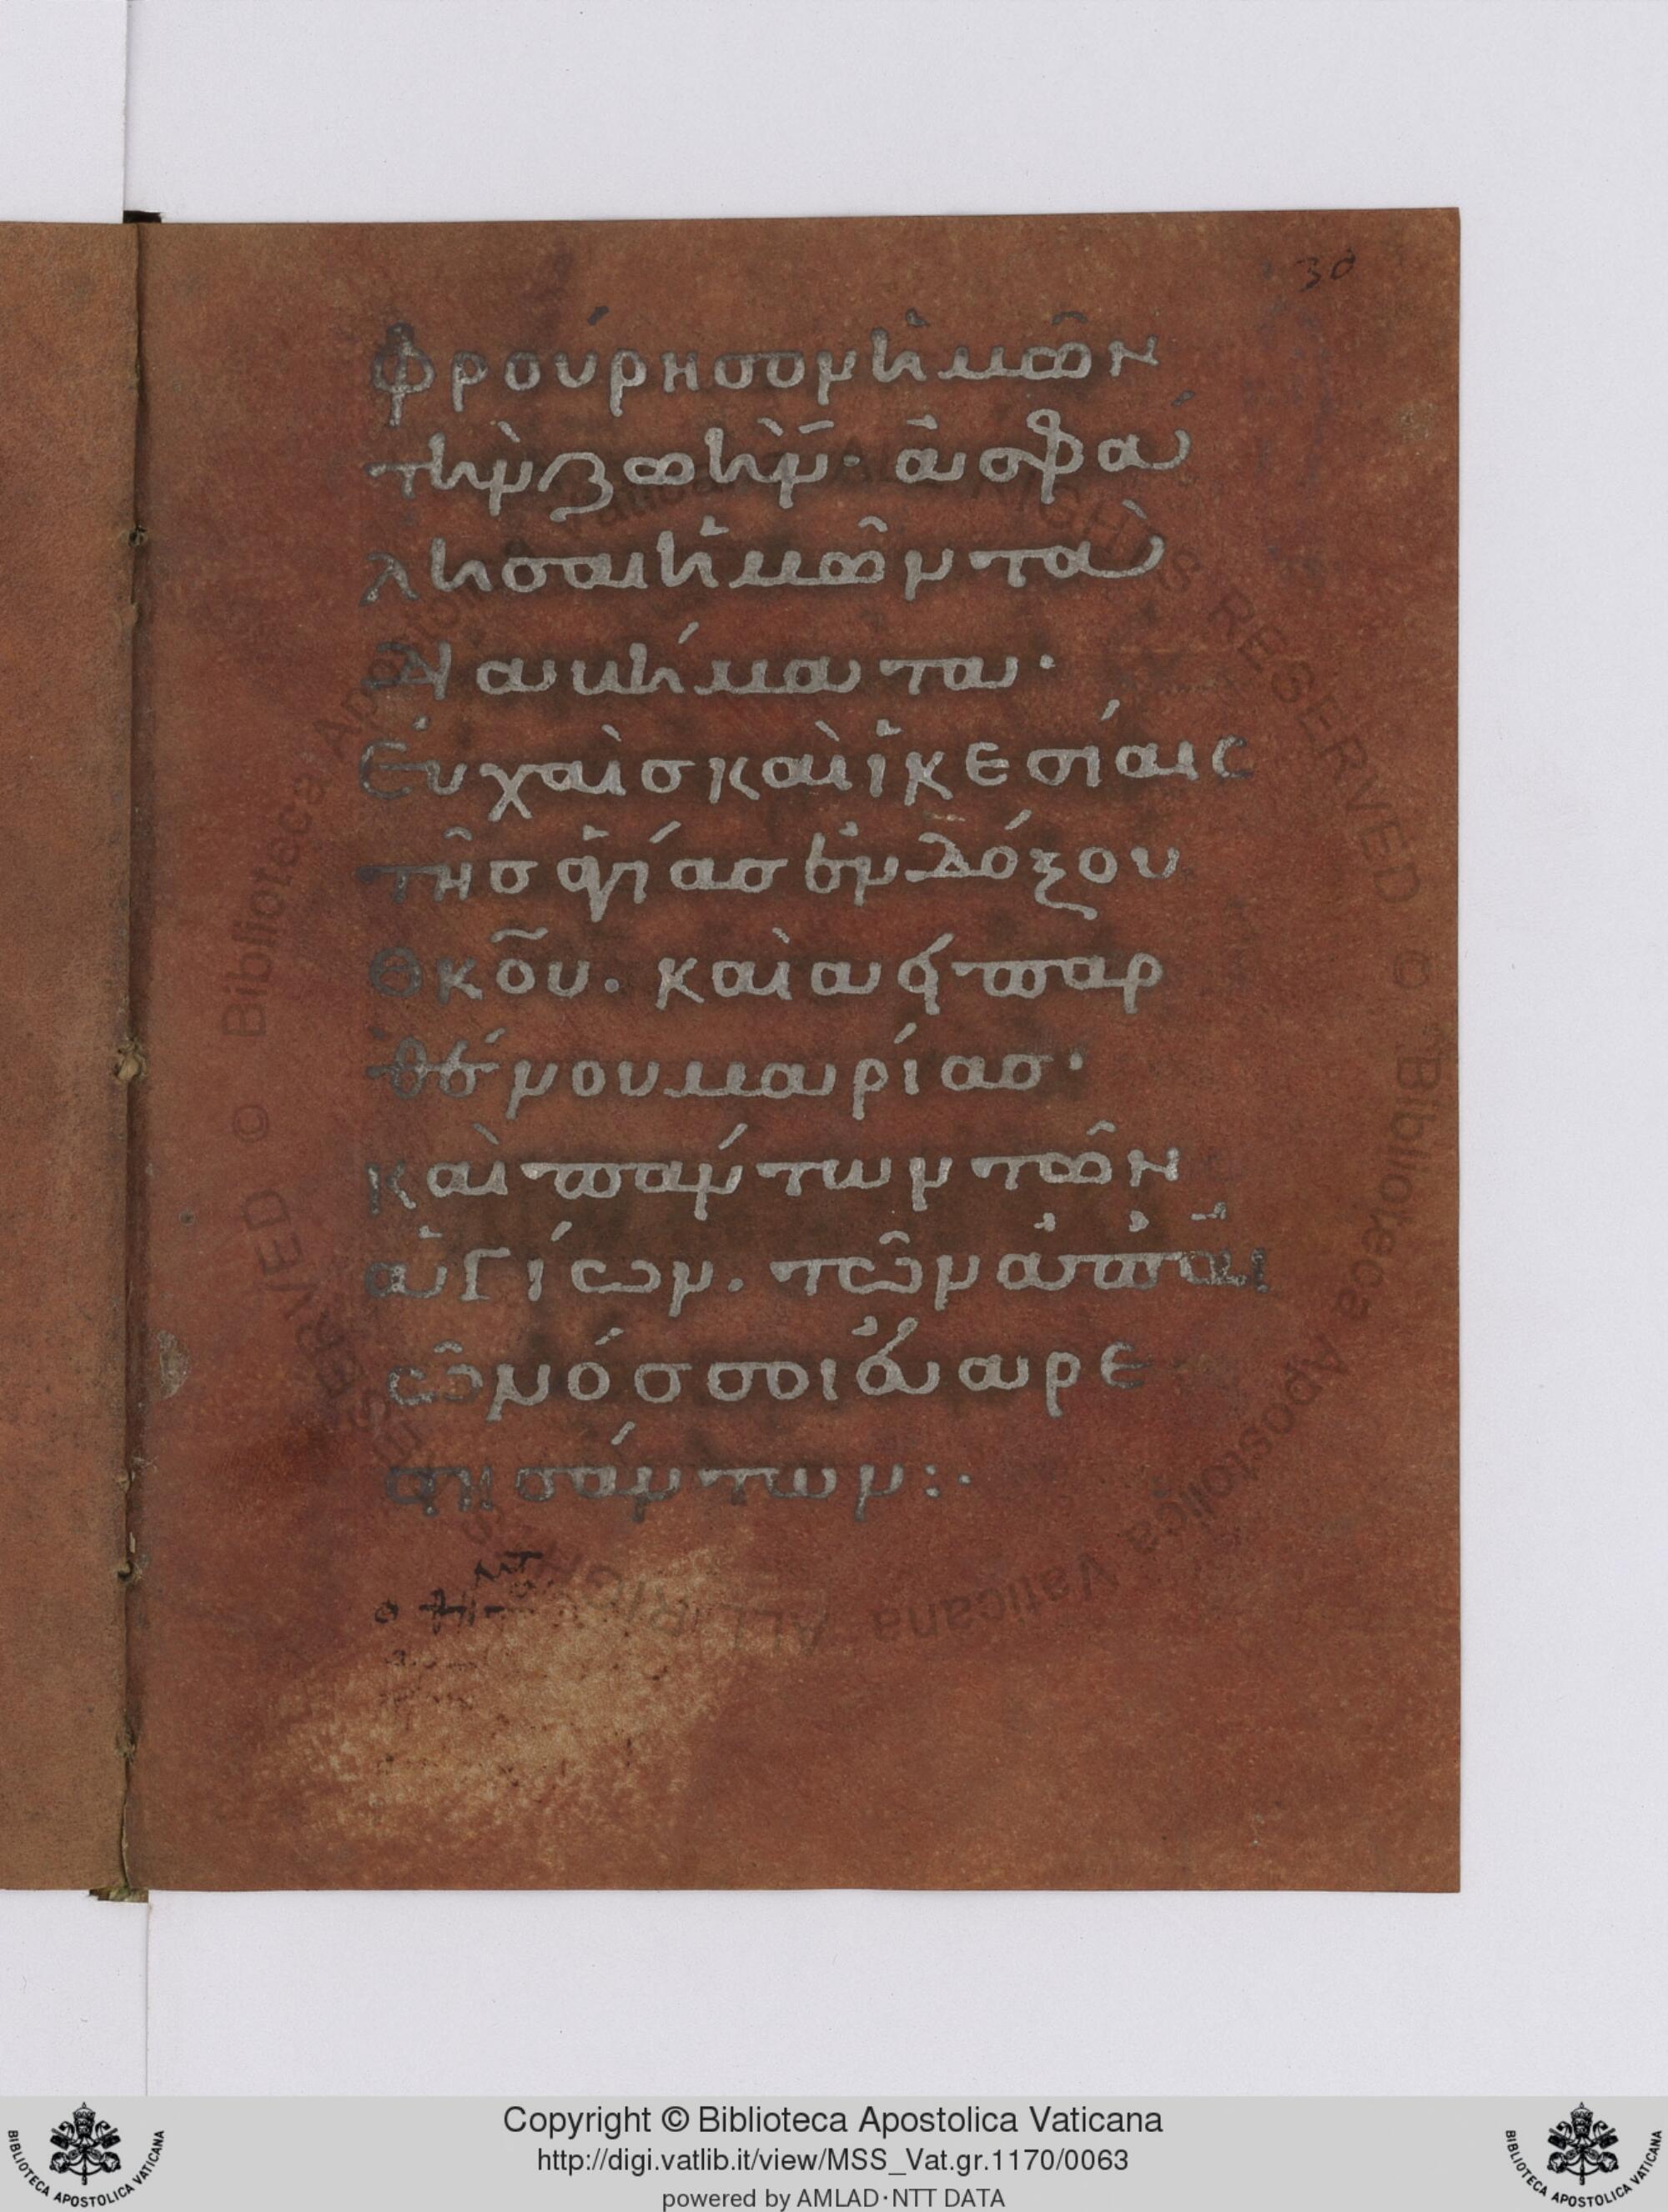 30
Φρούρησον ἡμῶν
τὴν ζωὴν· ἀσφά
λησαι ἡμῶν τὰ
διαβήματα·
Εὐχαὶς καὶ ἱκεσίαις
τῆς ἁγίας ἐνδόξου
Θκου. καὶ ἀειπαρ
θένου μαρίας·
καὶ πάντων τῶν
ἁγίων. τῶν ἀπ᾽ αἰ
ῶνός σοι εὐαρε
στησάντων:·
Copyright © Biblioteca Apostolica Vaticana
http://digi.vatlib.it/view/MSS_Vat.gr.1170/0063
powered by AMLAD·NTT DATA
BIBLIOTECA APOSTOLICA VATICANA
BIBLIOTECA APOSTOLICA VATICANA
© Biblioteca Apostolica Vaticana ALL RIGHTS RESERVED © Biblioteca Apostolica Vaticana ALL RIGHTS RESERVED